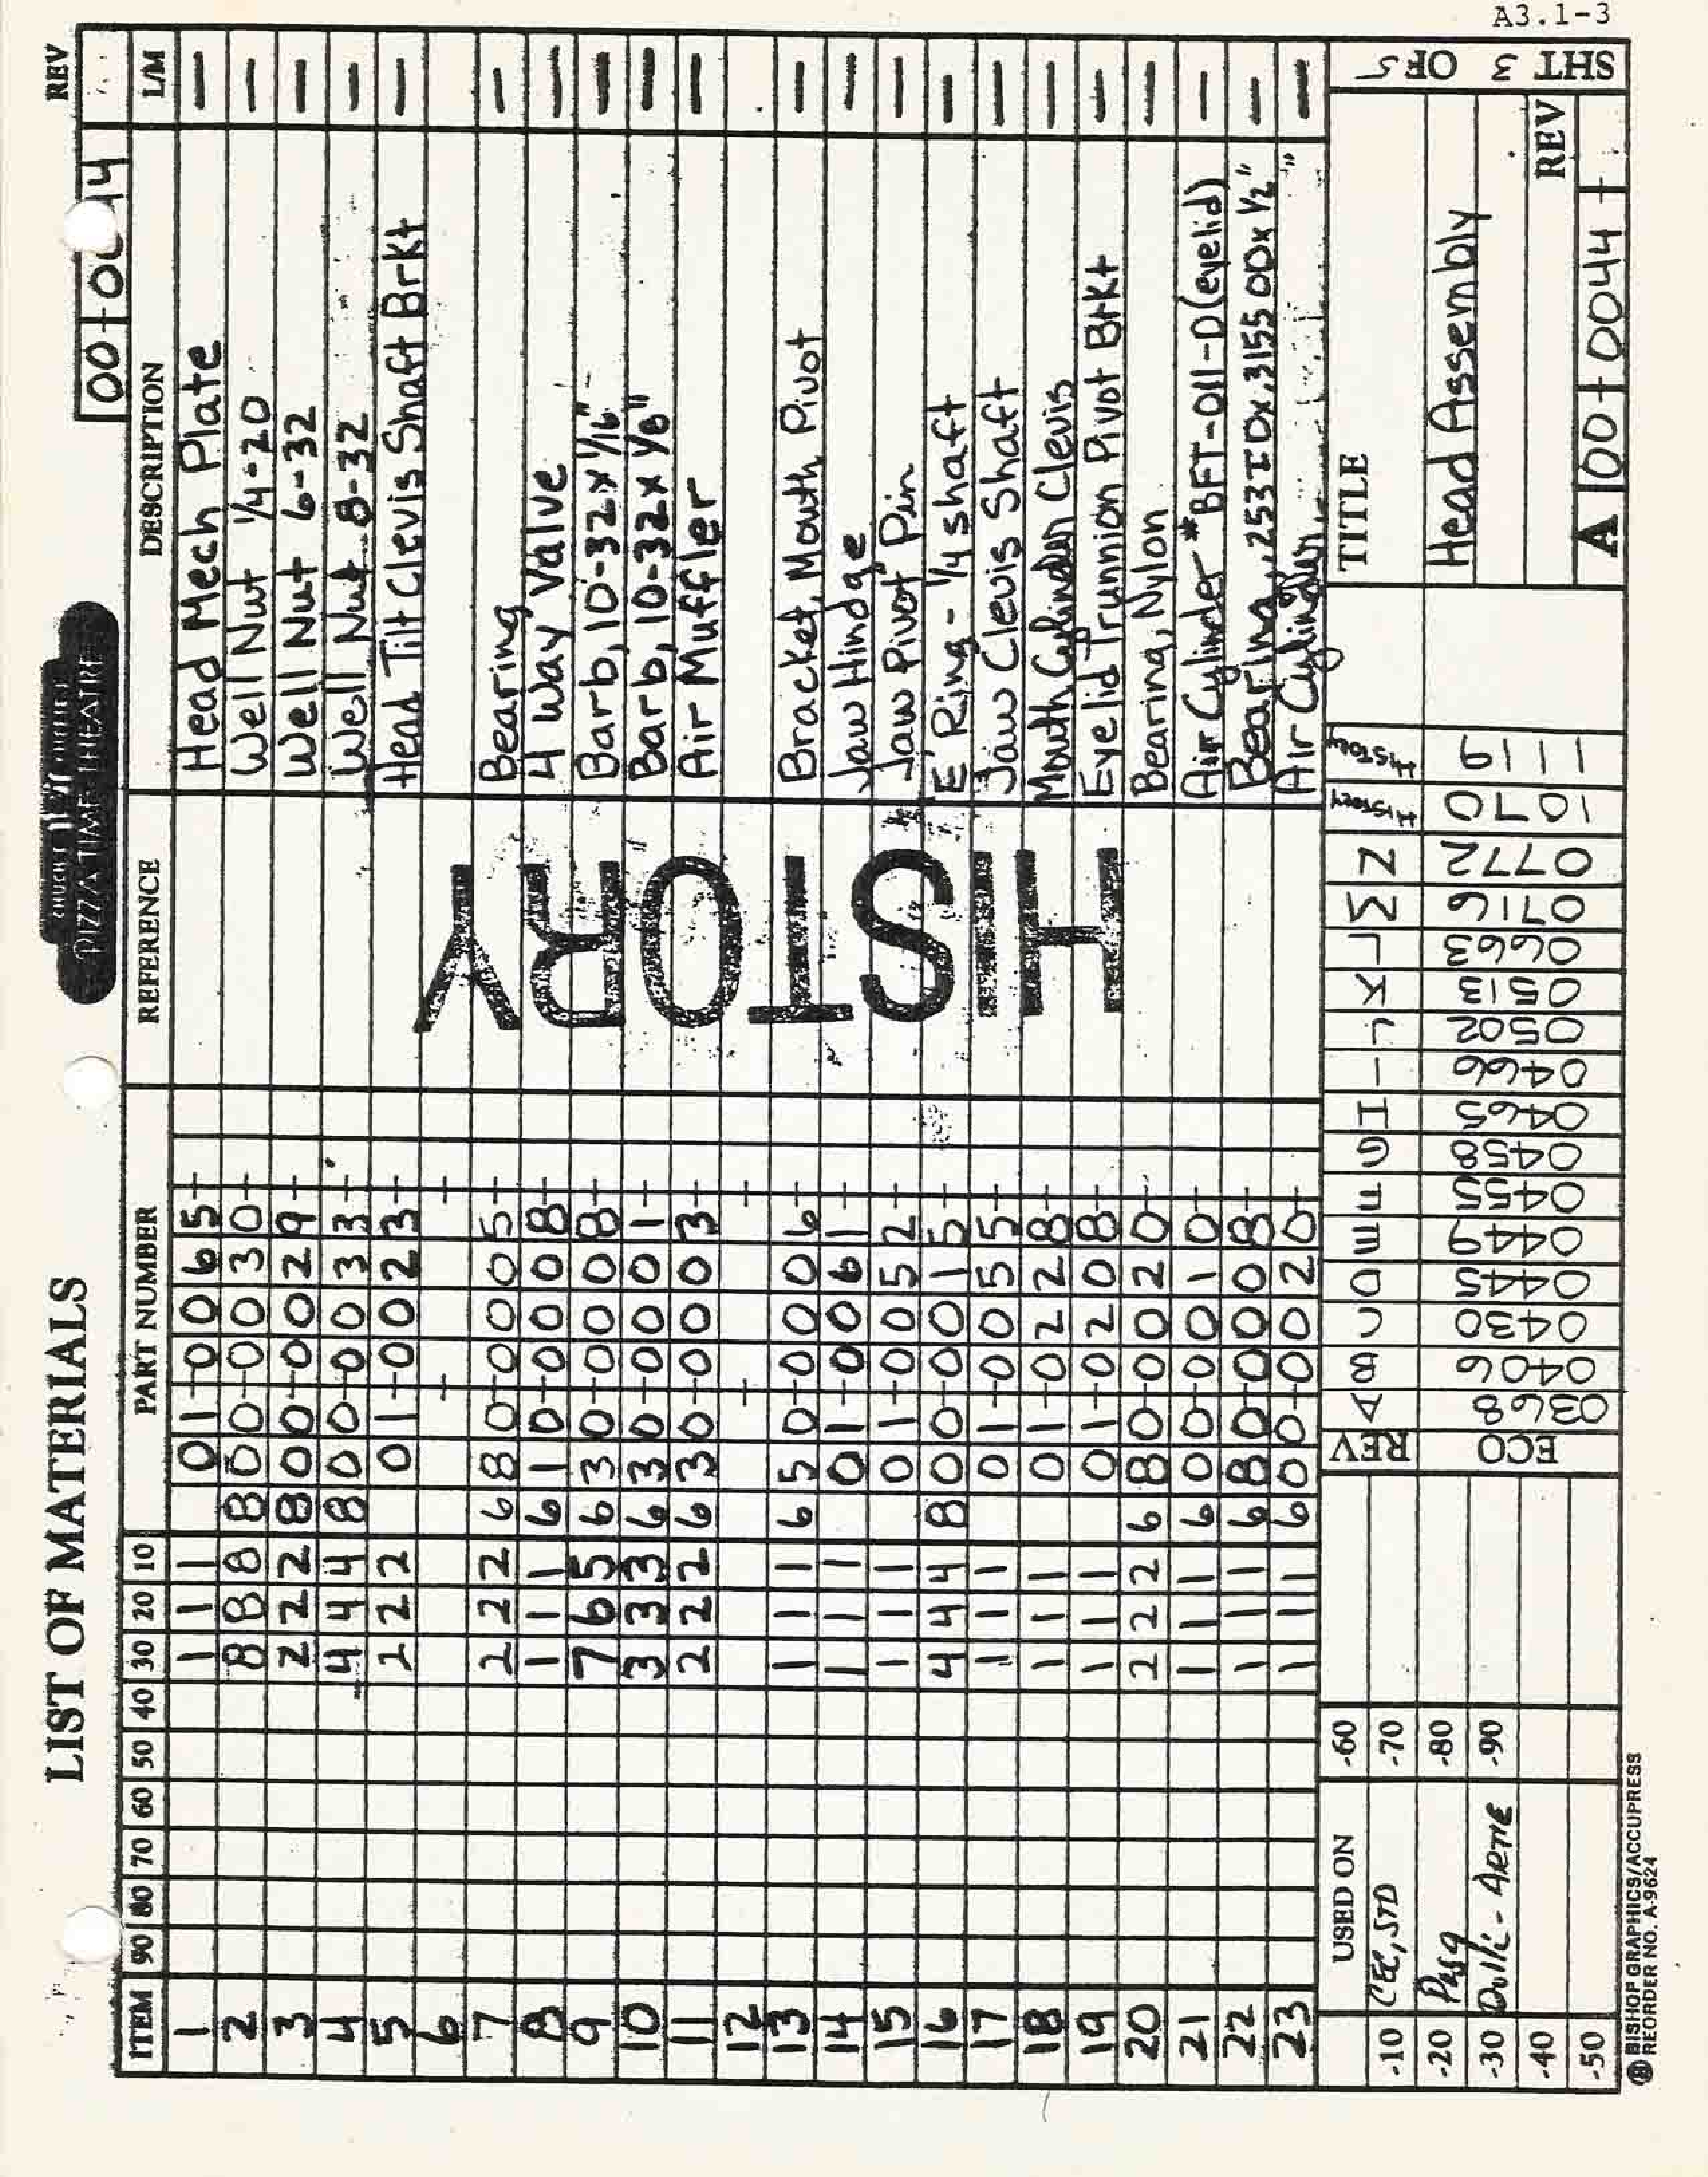 A3.1-3
LIST OF MATERIALS
PIZZA TIME THEATRE
REV
00+00 44
ITEM 90 80 70 60 50 40 30 20 10 PART NUMBER REFERENCE DESCRIPTION L/M
1 1 1 1 01-0065+ Head Mech Plate —
2 8 8 8 800-0030+ Well Nut 1/4-20 —
3 2 2 2 800-0029+ Well Nut 6-32 —
4 4 4 4 800-0033+ Well Nut 8-32 —
5 2 2 2 01-0023+ Head Tilt Clevis Shaft Brkt —
6 + +
7 2 2 2 680-0005+ Bearing —
8 1 1 1 610-0008+ 4 Way Valve —
9 7 6 5 630-0008+ Barb, 10-32 x 1/16" —
10 3 3 3 630-0001+ Barb, 10-32 x 1/8" —
11 2 2 2 630-0003+ Air Muffler —
12 + +
13 1 1 1 650-0006+ Bracket, Mouth Pivot —
14 1 1 1 01-0061+ Jaw Hindge —
15 1 1 1 01-0052+ Jaw Pivot Pin —
16 4 4 4 800-0015+ E' Ring - 1/4 shaft —
17 1 1 1 01-0055+ Jaw Clevis Shaft —
18 1 1 1 01-0228+ Mouth Cylinder Clevis —
19 1 1 1 01-0208+ Eyelid Trunnion Pivot Brkt —
20 2 2 2 680-0020+ Bearing, Nylon —
21 1 1 1 600-0010+ Air Cylinder *BFT-011-D (eyelid) —
22 1 1 1 680-0008+ Bearing, .253 ID x .3155 OD x 1/2" —
23 1 1 1 600-0020+ Air Cylinder —
HISTORY
USED ON
-10 CEC, STD
-20 Pasq
-30 Dolli - Artie
-40
-50
-60
-70
-80
-90
REV A B C D E F G H I J K L M N History History
ECO 0368 0406 0430 0445 0449 0455 0458 0465 0466 0502 0513 0663 0716 0772 1070 1119
TITLE
Head Assembly
SHT 3 OF 5
REV
A 00+0044+
BISHOP GRAPHICS/ACCUPRESS
REORDER NO. A-9624